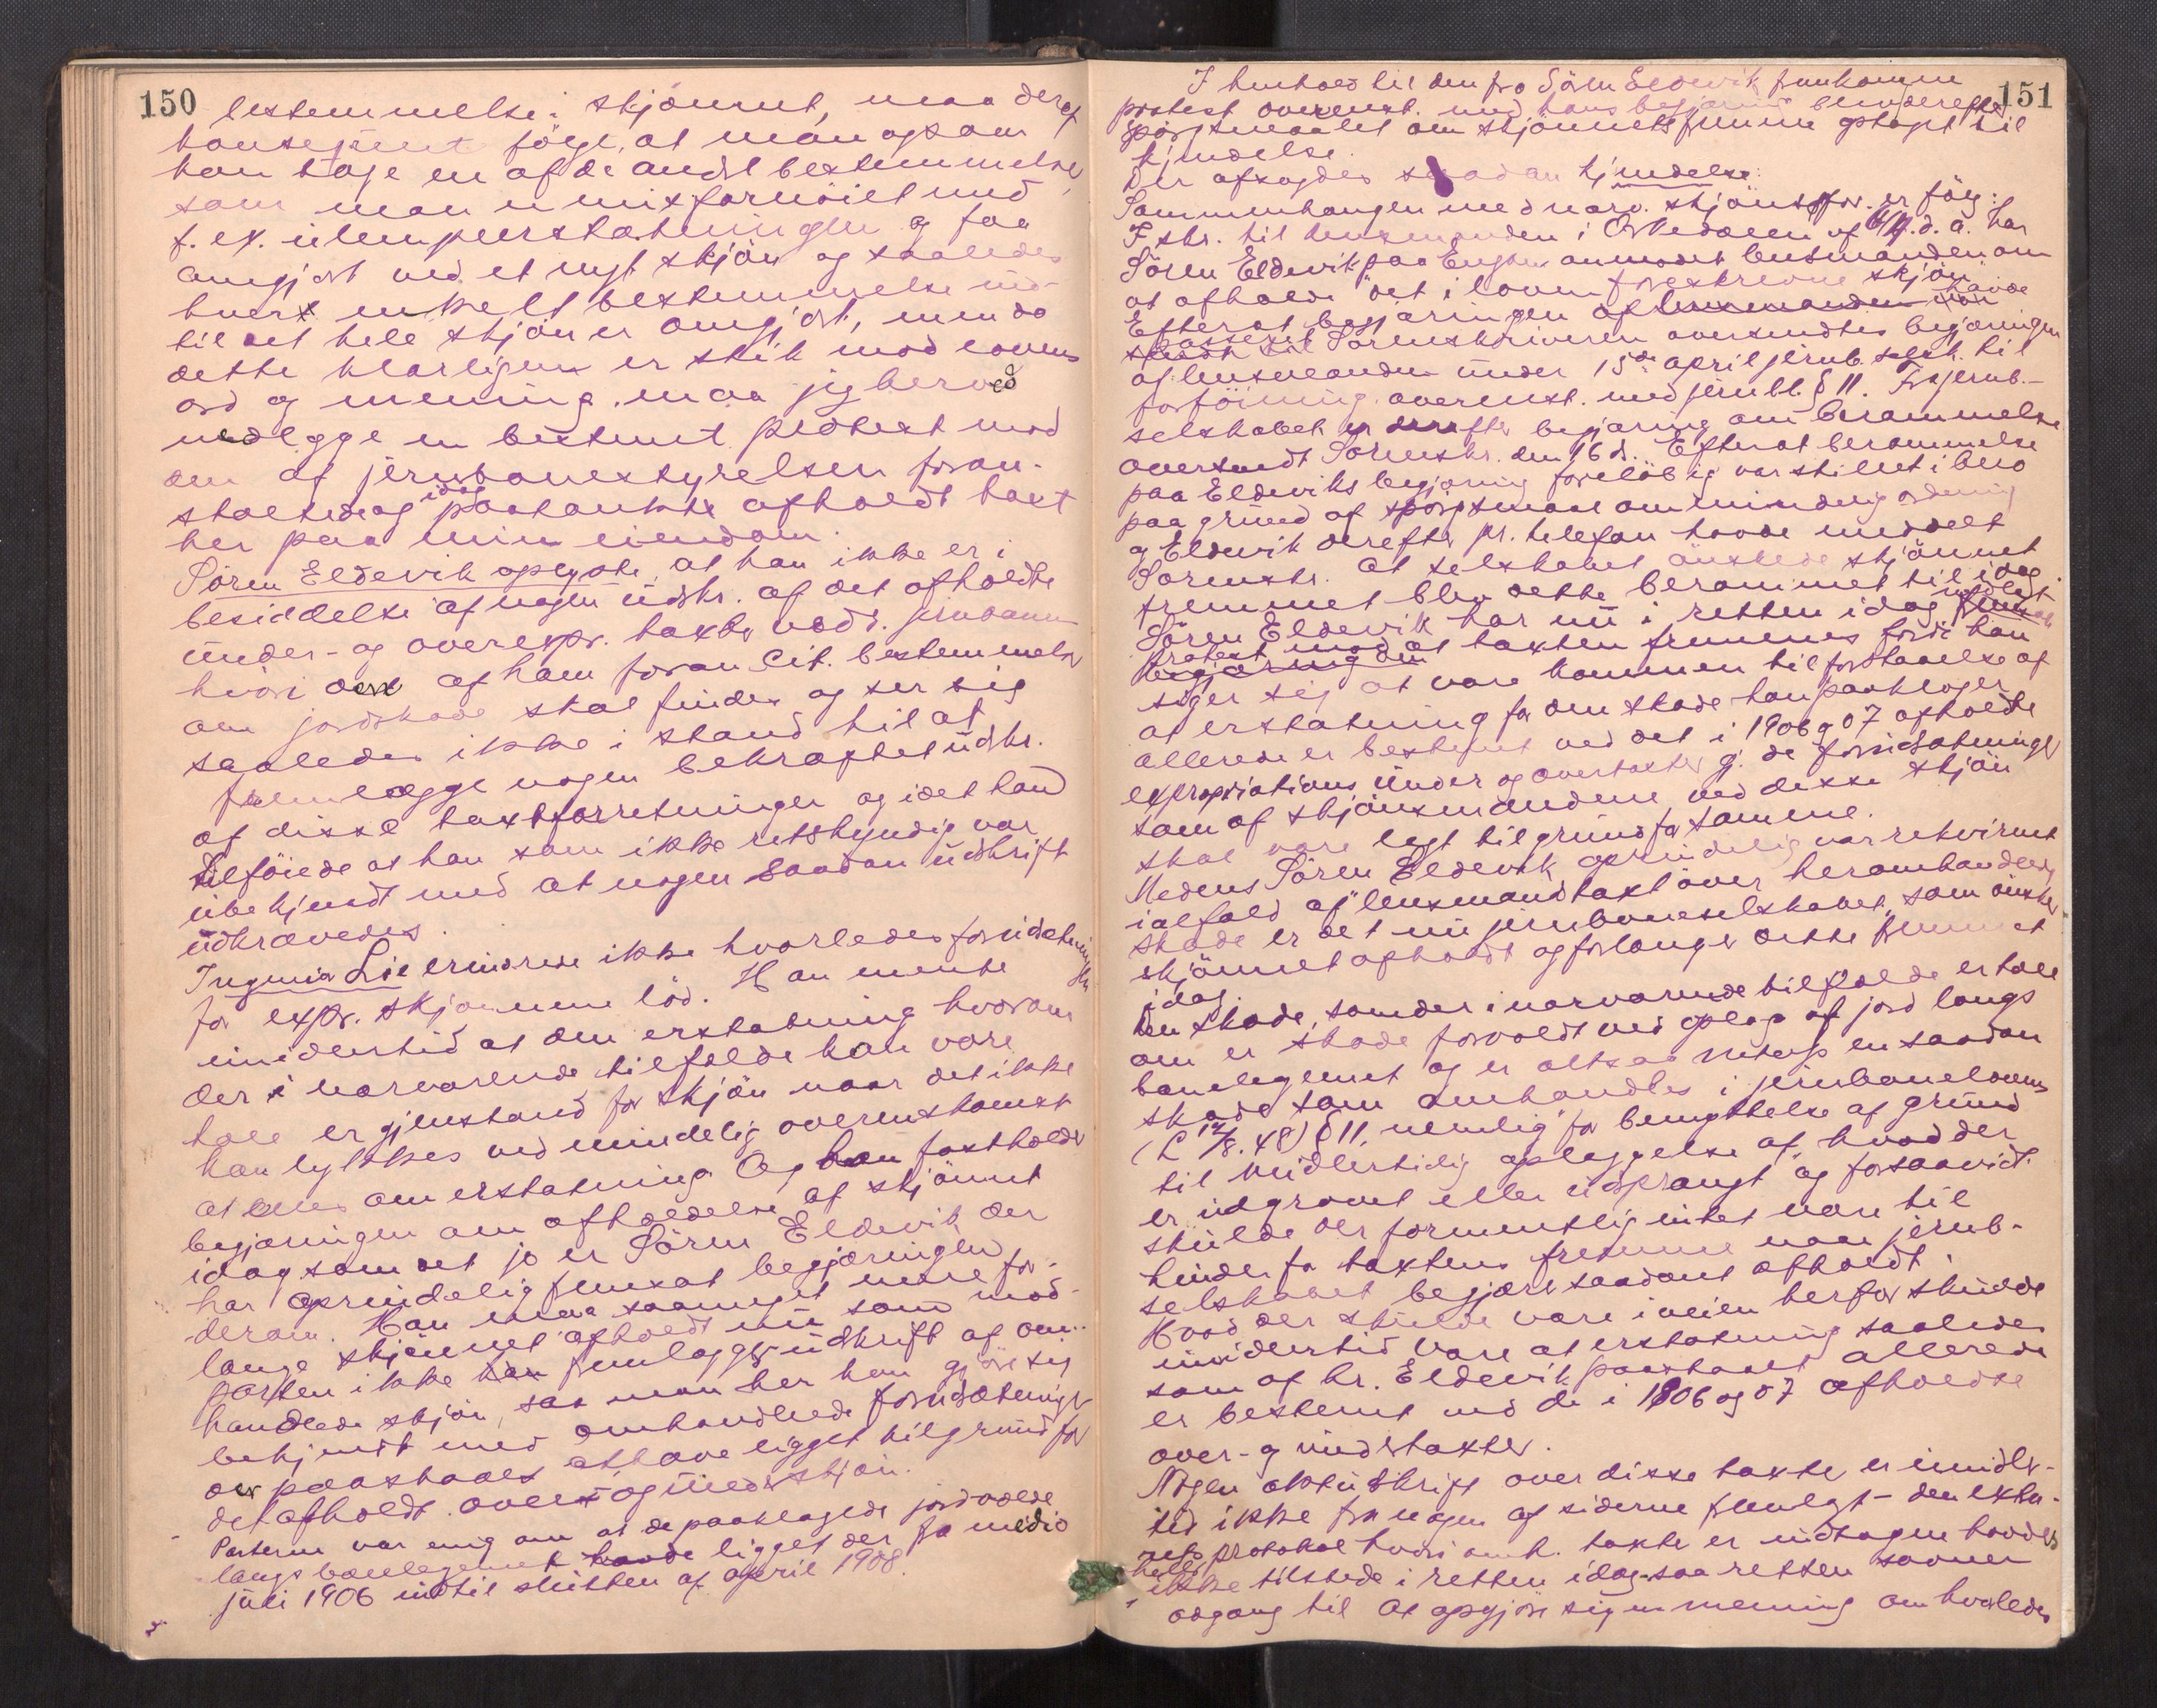 150
bestemmelse i skjønnet, maa deraf
konsekvent følge, at man ogsaa
kan tage en af de andre bestemmelser,
som man er misfornøiet med
f. ex. ulempeerstatningen og faa
omgjort ved et nyt skjøn og saaledes
hvert enkelt bestemmelse ind-
til det hele skjøn er omgjort, men da
dette klarligen er stik mod lovens
ord og mening maa jeg herved
nedlægge en bestemt protest mod
den af jernbanestyrelsen foran-
staltede og idag paatænkte afholdt taxt
her paa min eiendom.
Sören Eldevik oplyste, at han ikke er i
besiddelse af nogen udskr. af det afholdte
under- og overexpr. taxter vedr. jernbanen
hvori den af ham foran cit. bestemmelse
om jordskade skal findes og ser sig
saaledes ikke i stand til at
fremlægge nogen bekræftet udskr.
af disse taxtforretninger og idet han
tilføiede at han som ikke retskyndig var
ubekjendt med at nogen saadan udskrift
udkrævedes.
Ingeniør Lie erindrede ikke hvorledes forudsætningen
for expr. skjønnene löd. Han mente
imidlertid at den erstatning hvorom
der i nærværende tilfælde kan være
tale er gjenstand for skjön naar det ikke
kan lykkes ved mindelig overenskomst
at enes om erstatning. Og han fastholder
begjæringen om afholdelse af skjönnet
idag som det jo er Sören Eldevik der
har oprindelig fremsat begjæringen
derom. Han maa saameget mere for-
lange skjönnet afholdt nu som mod-
parten ikke har fremlagt udskrift af om-
handlede skjön, saa man her kan gjöre sig
bekjendt med omhandlede forudsætninger
der paastaaes at have ligget til grund for
det afholdt over og underskjön.
Parterne var enig om at de paaklagede jordvolde
langs banelegemet havde ligget der fra medio
juli 1906 indtil slutten af april 1908.
151
I henhold til den fra Sören Eldevik fremkomne
protest overenst. med hans begjæring blev derefter
spörgsmaalet om skjönnets fremme optaget til
kjendelse.
Der afsagdes saadan kjendelse:
Sammenhængen med nærv. skjönsfor. er fölg:
I skr. til lensmanden i Örstedalen af 6/4. d. a. har
Sören Eldevik paa Engen anmodet lensmanden om
at afholde "det i loven foreskrevne skjön"
Efterat begjæringen af lensmanden havde
passeret Sorenskriveren oversendtes begjæringen
af lensmanden under 15de april jernb. selsk. til
forföining overenst. med jernbl. § 11. Fra jernb.-
selskabet er derefter begjæring om berammelse
oversendt Sorenskr. den 16 d. Efterat berammelse
paa Eldeviks begjæring foreløbig var stillet i bero
paa grund af spörgsmaal om mindelig ordning
og Eldevik derefter pr. telefon havde meddelt
Sorenskr. at selskabet önskede skjönnet
fremmet blev dette berammet til idag.
Sören Eldevik har nu i retten idag nedlagt
protest mod at taxten fremmes fordi han
siger sig at være kommen til forstaaelse af
at erstatning for den skade han paaklager
allerede er bestemt ved det i 1906 og 07 afholdte
expropriations under og overtaxter gj. de forudsætninger
som af skjönsmændene ved disse skjön
skal være lagt til grund for samme.
Medens Sören Eldevik oprindelig var rekvirent
ialfald af "lensmandstaxt" over heromhandlede
skade er det nu jernbaneselskabet, som önsker
skjönnet afholdt og forlanger dette fremmet
idag.
Den skade, som der i nærværende tilfælde er tale
om er skade forvoldt ved oplag af jord langs
banelegemet og er altsaa netop en saadan
skade som omhandles i jernbaneloven
(L 12/8. 48) § 11, nemlig "for benyttelse af grund
til midlertidig oplæggelse af hvad der
er udgravet eller udsprængt" og forsaavidt
skulde der formentlig intet være til
hinder for taxtens fremme naar jernb-
selskabet begjærer saadant afholdt.
Hvad der skulde være i veien herfor skulde
imidlertid være at erstatning saaledes
som af hr. Eldevik paastaaet allerede
er bestemt ved de i 1906 og 07 afholdte
over- og undertaxter.
Nogen aktudskrift over disse taxter er imidler-
tid ikke fra nogen af siderne fremlagt - den extra-
rets protokol hvori omh. taxter er indtagen havdes
heller ikke tilstede i retten idag saa retten savner
adgang til at opgjöre sig en mening om hvorledes